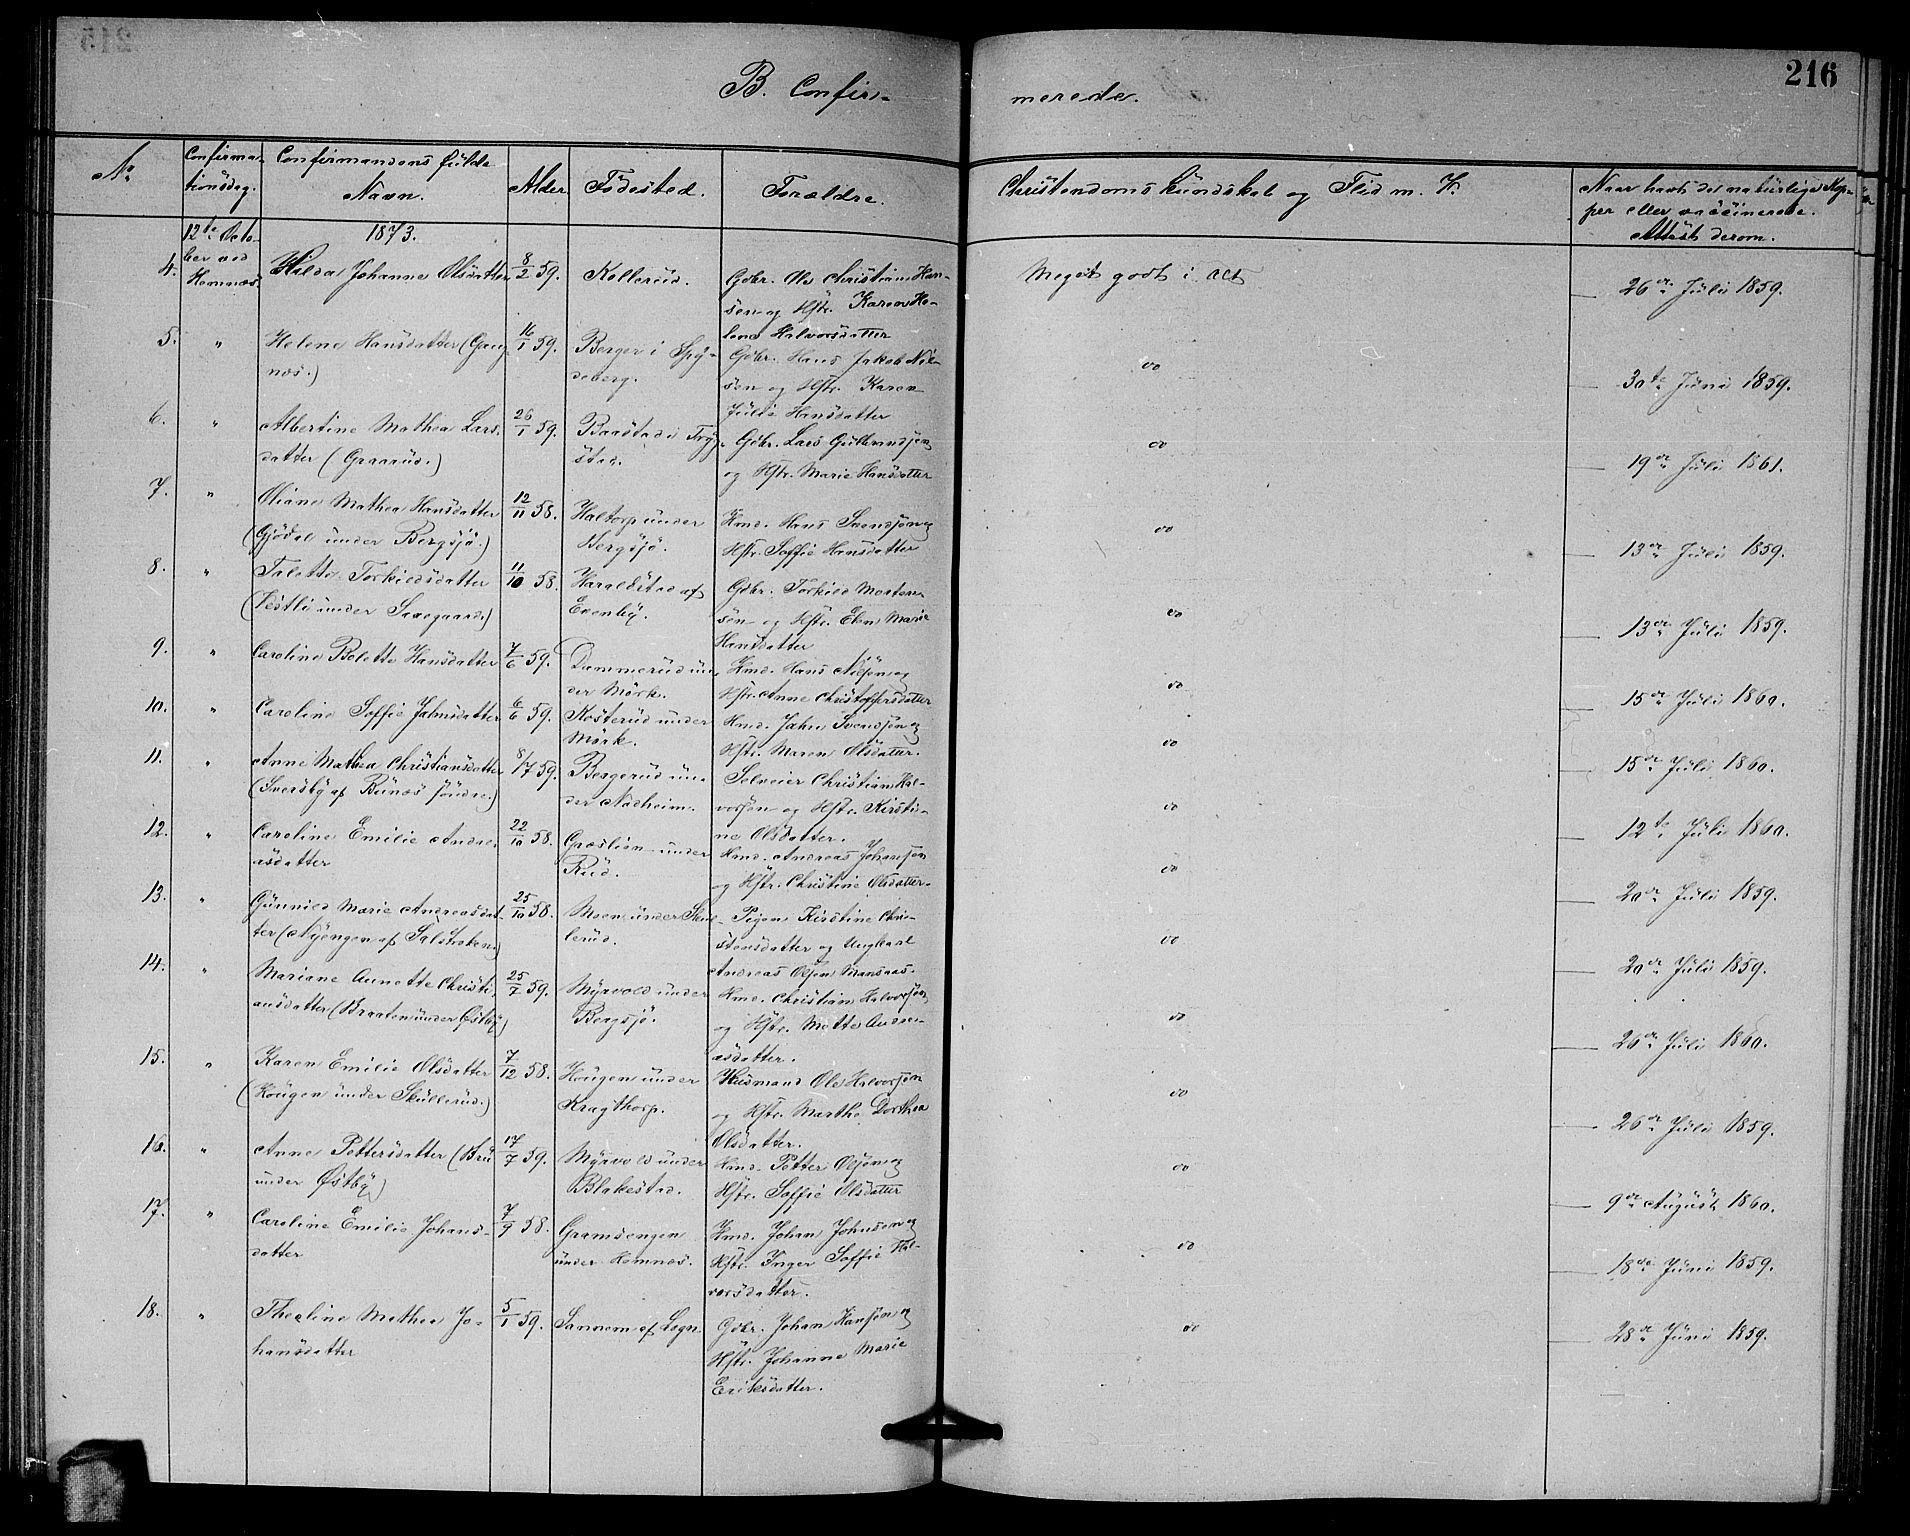 216
B. Confir-
merede.
No
Confirma-
tionsdag.
Confirmandens fulde
Navn.
Alder
Födested.
Forældre.
Christendoms Kundskab og Flid m. V.
Naar havt de naturlige Kop-
per eller vaccinerede.
Attest derom.
12te Octo-
ber ved
Hemnæs
1873.
4. Hilda Johanne Olsdatter 8/2 59. Kollerud. Gdbr. Ole Christian Han-
sen og Hstr. Karen He-
lene Halvorsdatter
Meget godt i Alt
26de Juli 1859.
5. " Helene Hansdatter (Gang-
næs.) 16/1 59. Berger i Spy-
deberg. Gdbr. Hans Jakob Nil-
sen og Hstr. Karen
Julie Hansdatter
do
30te Juni 1859.
6. " Albertine Mathea Lars-
datter (Graarud.) 26/1 59. Baastad i Tryg-
stad. Gdbr. Lars Gulbrandsen
og Hstr. Marie Hansdatter
do
19de Juli 1861.
7. " Oliane Mathea Hansdatter
(Gjödal under Bergsjö.) 12/11 58. Haltorp under
Bergsjö. Hmd. Hans Svendsen og
Hstr. Soffie Hansdatter
do
13de Juli 1859.
8. " Talette Torkildsdatter
(Vestli under Saxegaard.) 11/10 58. Haraldstad af
Evenby. Gdbr. Torkild Morten-
sen og Hstr. Elen Marie
Hansdatter
do
13de Juli 1859.
9. " Caroline Belette Hansdatter 7/6 59. Dammerud un-
der Mörk. Hmd. Hans Nilsen og
Hstr. Anne Christoffersdatter
do
15de Juli 1860.
10. " Caroline Soffie Jahnsdatter 6/6 59. Kosterud under
Mörk. Hmd. Jahn Svendsen og
Hstr. Maren Olsdatter.
do
15de Juli 1860.
11. " Anne Mathea Christiansdatter
(Sversby af Bunæs söndre.) 8/17 59. Bergerud un-
der Aadheim. Selveier Christian Hal-
vorsen og Hstr. Kirsti-
ne Olsdatter.
do
12te Juli 1860.
12. " Caroline Emilie Andre-
asdatter 22/10 58. Græslien under
Rud. Hmd. Andreas Johansen
og Hstr. Christine Olsdatter.
do
20de Juli 1859.
13. " Gunnild Marie Andreasdat-
ter (Nyengen af Salstroken) 25/10 58. Moen under Skul-
lerud. Pigen Kirstine Chri-
stensdatter og Ungkarl
Andreas Olsen Mansaas.
do
20de Juli 1859.
14. " Mariane Annette Christi-
ansdatter (Braaten under Östby) 25/7 59. Myrvold under
Bergsjö. Hmd. Christian Halvorsen
og Hstr. Mette Andre-
asdatter.
do
26de Juli 1860.
15. " Karen Emilie Olsdatter
(Hougen under Skullerud.) 7/12 58. Hougen under
Kragthorp. Husmand Ole Halvorsen
og Hstr. Marthe Dorthea
Olsdatter.
do
26de Juli 1859.
16. " Anne Pettersdatter (Bru
under Østby) 17/7 59. Myrvold under
Blakestad. Hmd. Petter Olsen og
Hstr. Soffie Olsdatter
do
9de August 1860.
17. " Caroline Emilie Johans-
datter 7/9 58. Gramsengen
under Hemnæs. Hmd. Johan Johnsen og
Hstr. Inger Soffie Hal-
vorsdatter.
do
18de Juni 1859.
18. " Thealine Mathea Jo-
hansdatter 5/1 59. Sannem af Logn Gdbr. Johan Hansen og
Hstr. Johanne Marie
Eriksdatter.
do
28de Juni 1859.